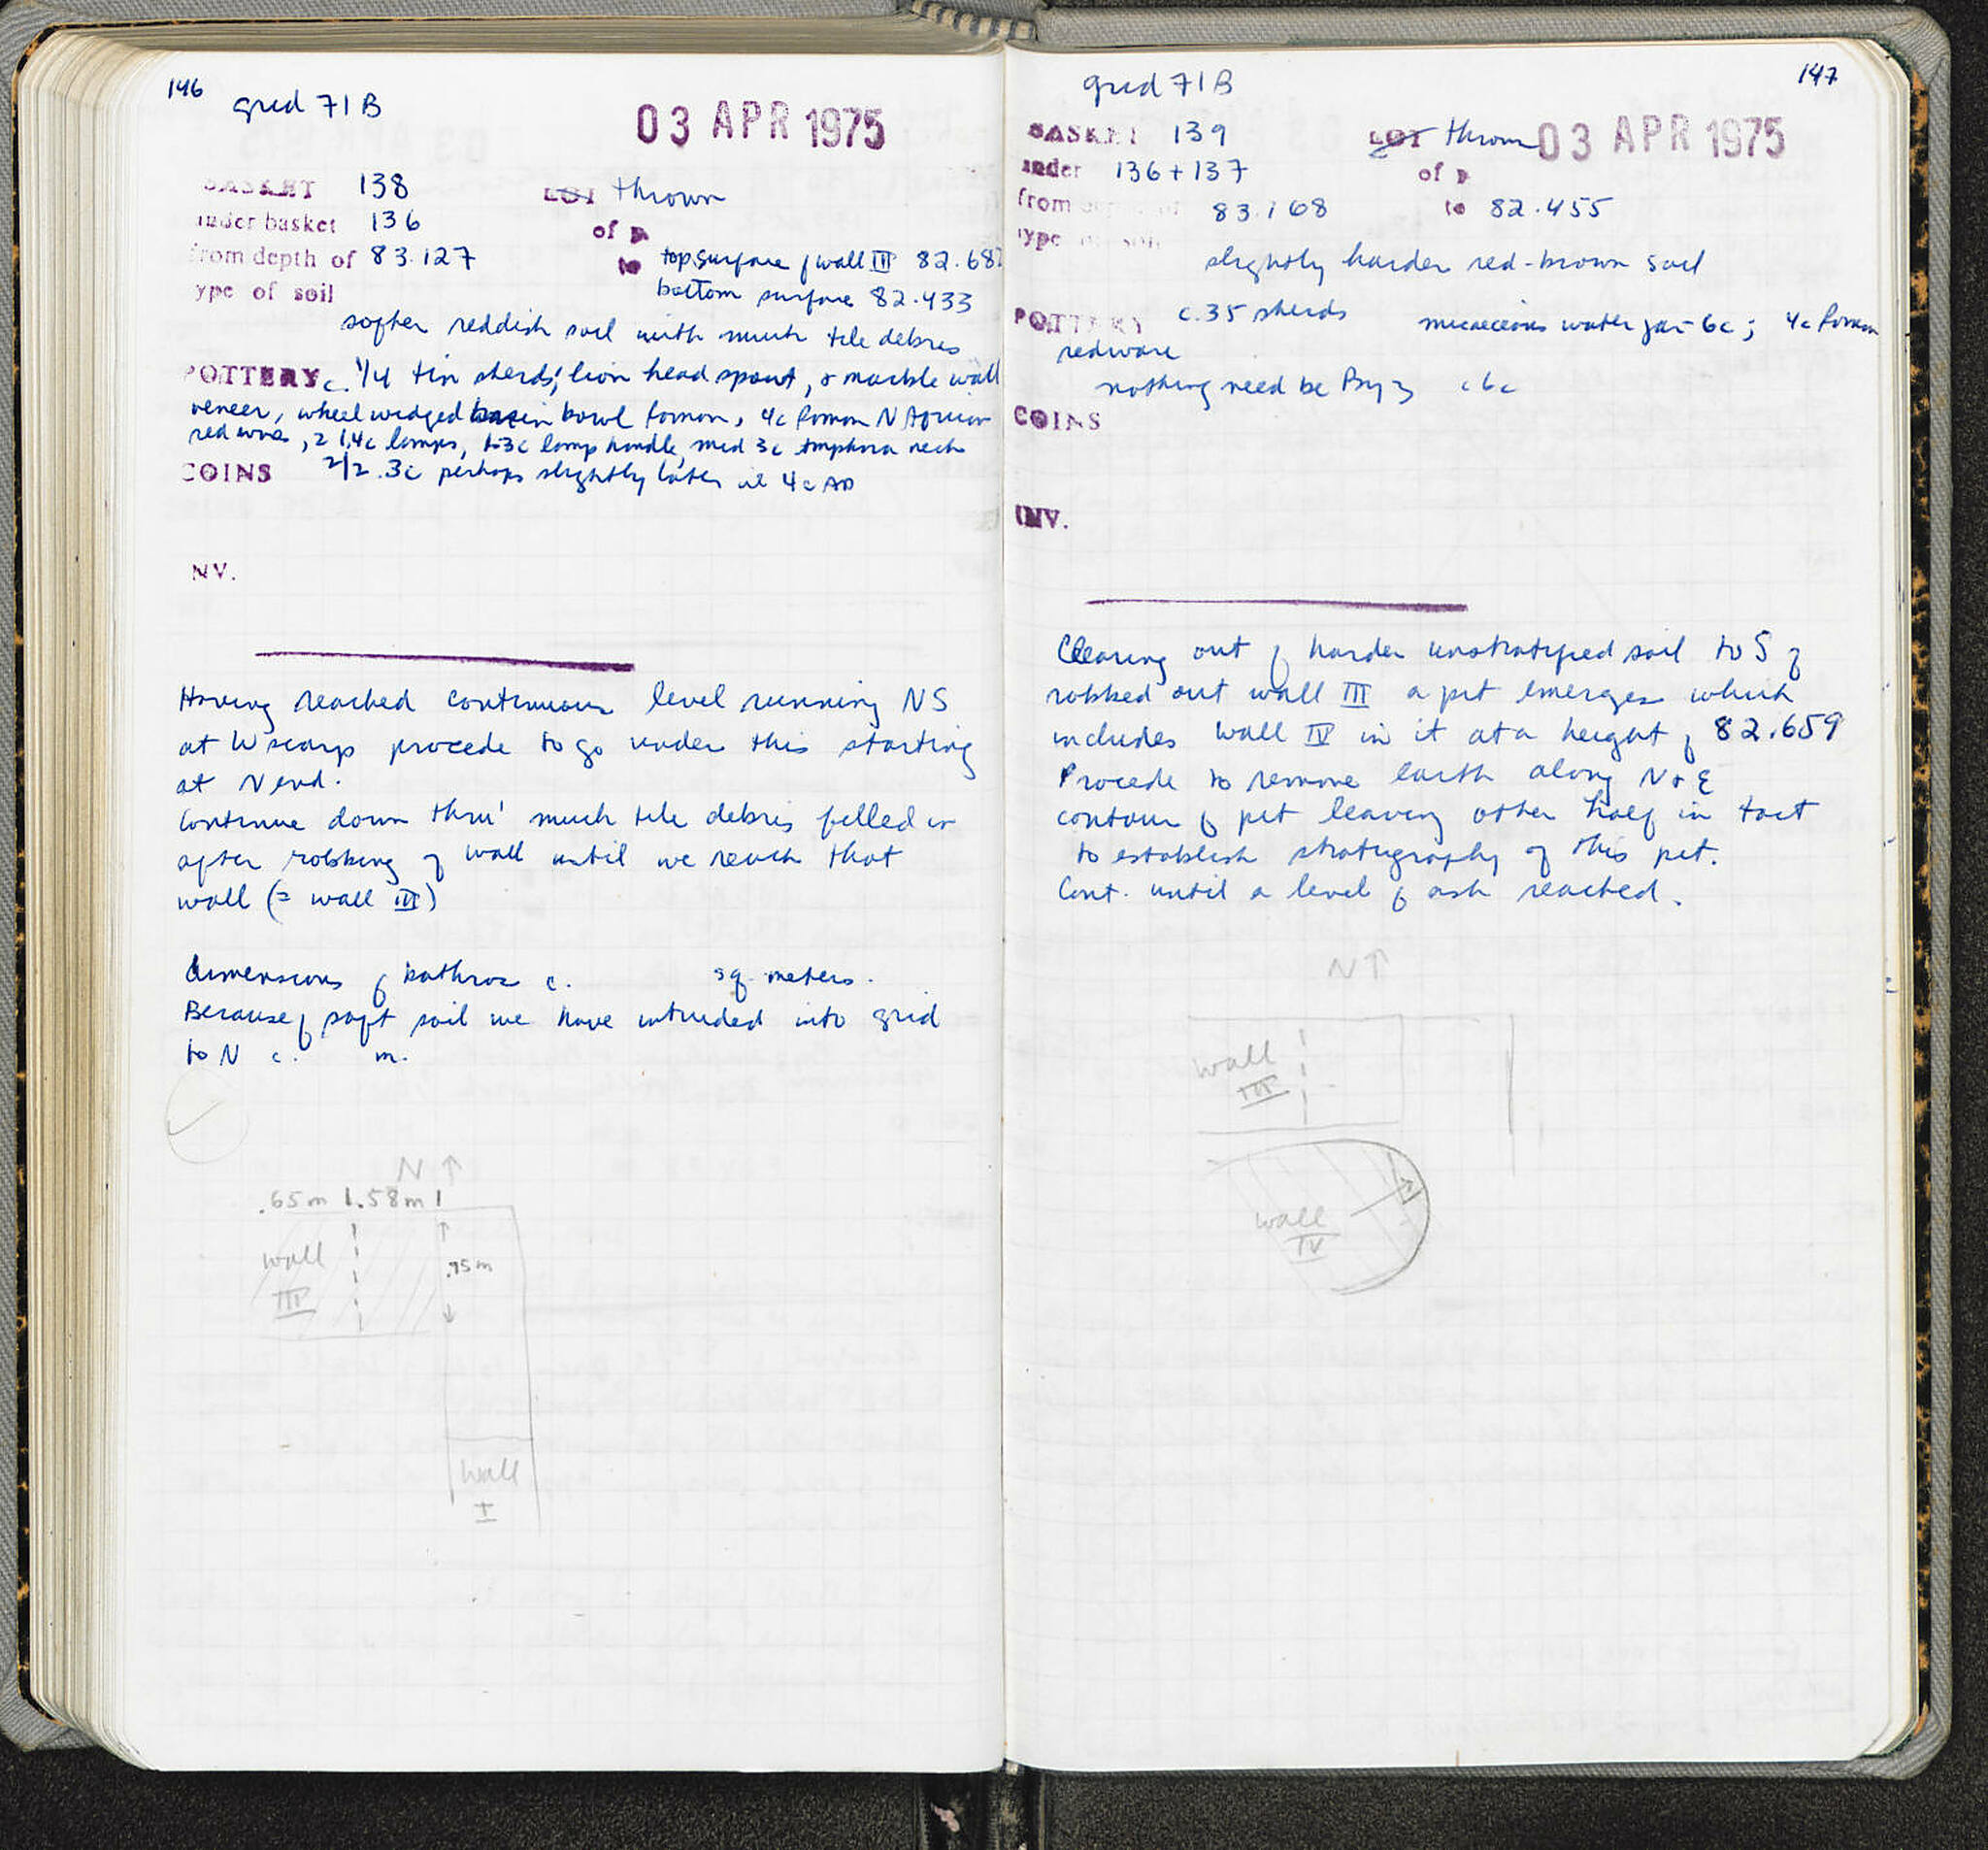 146
grid 71B
03 APR 1975
BASKET 138 LOT thrown
under basket 136 of
from depth of 83.127 to top surface of wall III 82.68
type of soil bottom surface 82.433
softer reddish soil with much tile debris
POTTERY c. 1/4 tin sherds; lion head spout, & marble wall
veneer, wheel wedged bowl Roman, 4c Roman N African
red wares, 2 lamps, 3c lamp handle, med 3c amphora neck
COINS 3c perhaps slightly later ie 4c AD
NV.
Having reached continuous level running NS
at W scarp procede to go under this starting
at N end.
Continue down thru' much tile debris filled in
after robbing of wall until we reach that
wall (= wall III)
dimensions of bothros c. sq. meters.
Because of soft soil we have intruded into grid
to N c. m.
N ↑
.65m 1.58m
wall
III
.75m
wall
I
147
grid 71B
BASKET 139 LOT thrown 03 APR 1975
under 136 + 137 of
from 83.168 to 82.455
type of soil
slightly harder red-brown soil
POTTERY c. 35 sherds micaceous water jar - 6c; 4c Roman
redware
nothing need be c 6c
COINS
INV.
Clearing out of harder unstratified soil to S of
robbed out wall III a pit emerges which
includes wall IV in it at a height of 82.659
Procede to remove earth along N & E
contour of pit leaving other half in tact
to establish stratigraphy of this pit.
Cont. until a level of ash reached.
N↑
wall
III
wall
IV